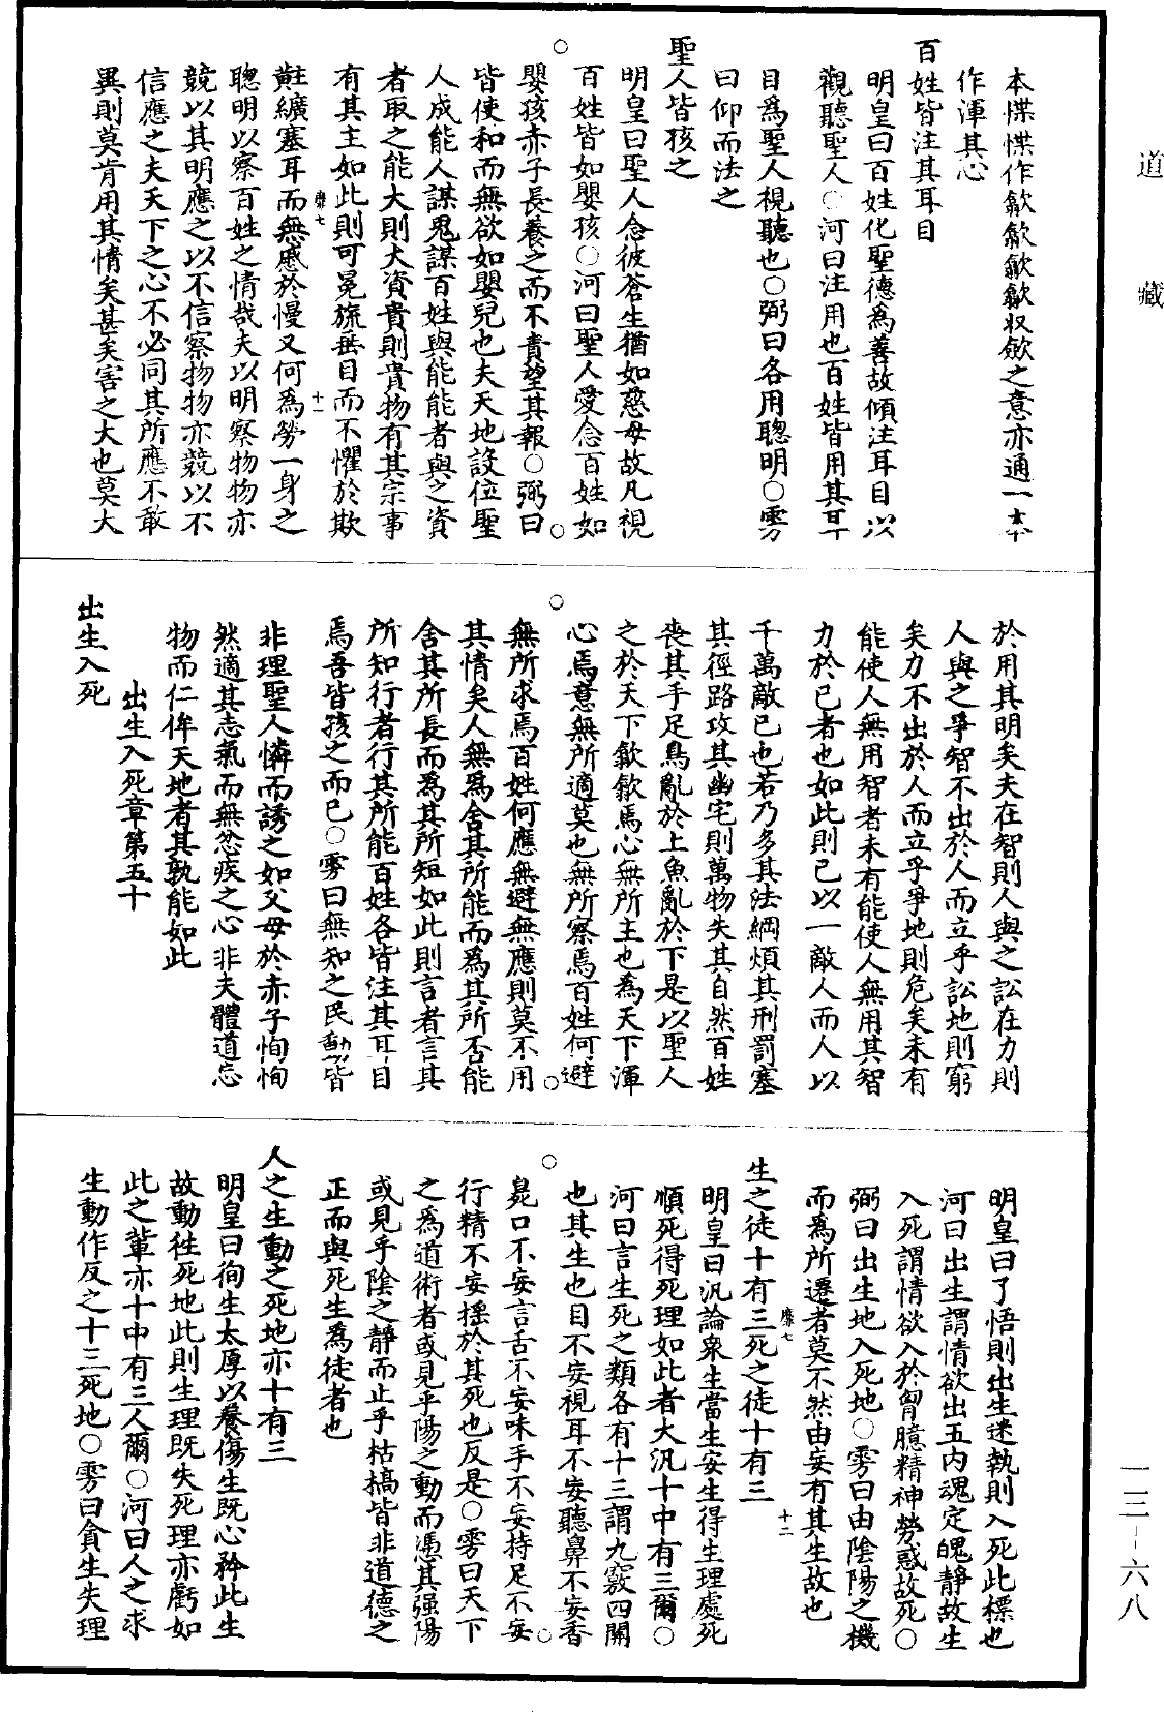 道藏
本惵惵作歙歙歙歙収斂之意亦通一本
作渾其心
百姓皆注其耳目
明皇曰百姓化聖德爲善故傾注耳目以
觀聽聖人○河曰注用也百姓皆用其耳
目爲聖人視聽也○弼曰各用聰明○雱
曰仰而法之
聖人皆孩之
明皇曰聖人念彼蒼生猶如慈母故凡視
百姓皆如嬰孩○河曰聖人愛念百姓如
嬰孩赤子長養之而不責望其報○弼曰
皆使和而無欲如嬰兒也夫天地設位聖
人成能人謀鬼謀百姓與能能者與之資
者取之能大則大資貴則貴物有其宗事
有其主如此則可冕旒垂目而不懼於欺
靡七
十一
黈纊塞耳而無慼於慢又何爲勞一身之
聰明以察百姓之情哉夫以明察物物亦
競以其明應之以不信察物物亦競以不
信應之夫天下之心不必同其所應不敢
異則莫肯用其情矣甚矣害之大也莫大
於用其明矣夫在智則人與之訟在力則
人與之爭智不出於人而立乎訟地則窮
矣力不出於人而立乎爭地則危矣未有
能使人無用智者未有能使人無用其智
力於已者也如此則已以一敵人而人以
千萬敵已也若乃多其法網煩其刑罰塞
其徑路攻其幽宅則萬物失其自然百姓
喪其手足鳥亂於上魚亂於下是以聖人
之於天下歙歙焉心無所主也為天下渾
心焉意無所適莫也無所察焉百姓何避
無所求焉百姓何應無避無應則莫不用
其情矣人無爲舍其所能而爲其所否能
舍其所長而爲其所短如此則言者言其
所知行者行其所能百姓各皆注其耳目
焉吾皆孩之而已○雱曰無知之民動皆
非理聖人憐而誘之如父母於赤子恂恂
然適其志氣而無忿疾之心非夫體道忘
物而仁侔天地者其孰能如此
出生入死章第五十
出生入死
明皇曰了悟則出生迷執則入死此標也
河曰出生謂情欲出五内魂定魄靜故生
入死謂情欲入於胷臆精神勞惑故死○
弼曰出生地入死地○雱曰由陰陽之機
而為所遷者莫不然由妄有其生故也
靡七
十二
生之徒十有三死之徒十有三
明皇曰汎論衆生當生安生得生理處死
順死得死理如此者大汎十中有三爾○
河曰言生死之類各有十三謂九竅四關
也其生也目不妄視耳不妄聽鼻不妄香
臭口不妄言舌不妄味手不妄持足不妄
行精不妄搖於其死也反是○雱曰天下
之爲道術者或見乎陽之動而憑其强陽
或見乎陰之靜而止乎枯槁皆非道德之
正而與死生爲徒者也
人之生動之死地亦十有三
明皇曰徇生太厚以養傷生既心矜此生
故動徃死地此則生理既失死理亦虧如
此之輩亦十中有三人爾○河曰人之求
生動作反之十三死地○雱曰貪生失理
一三-六八